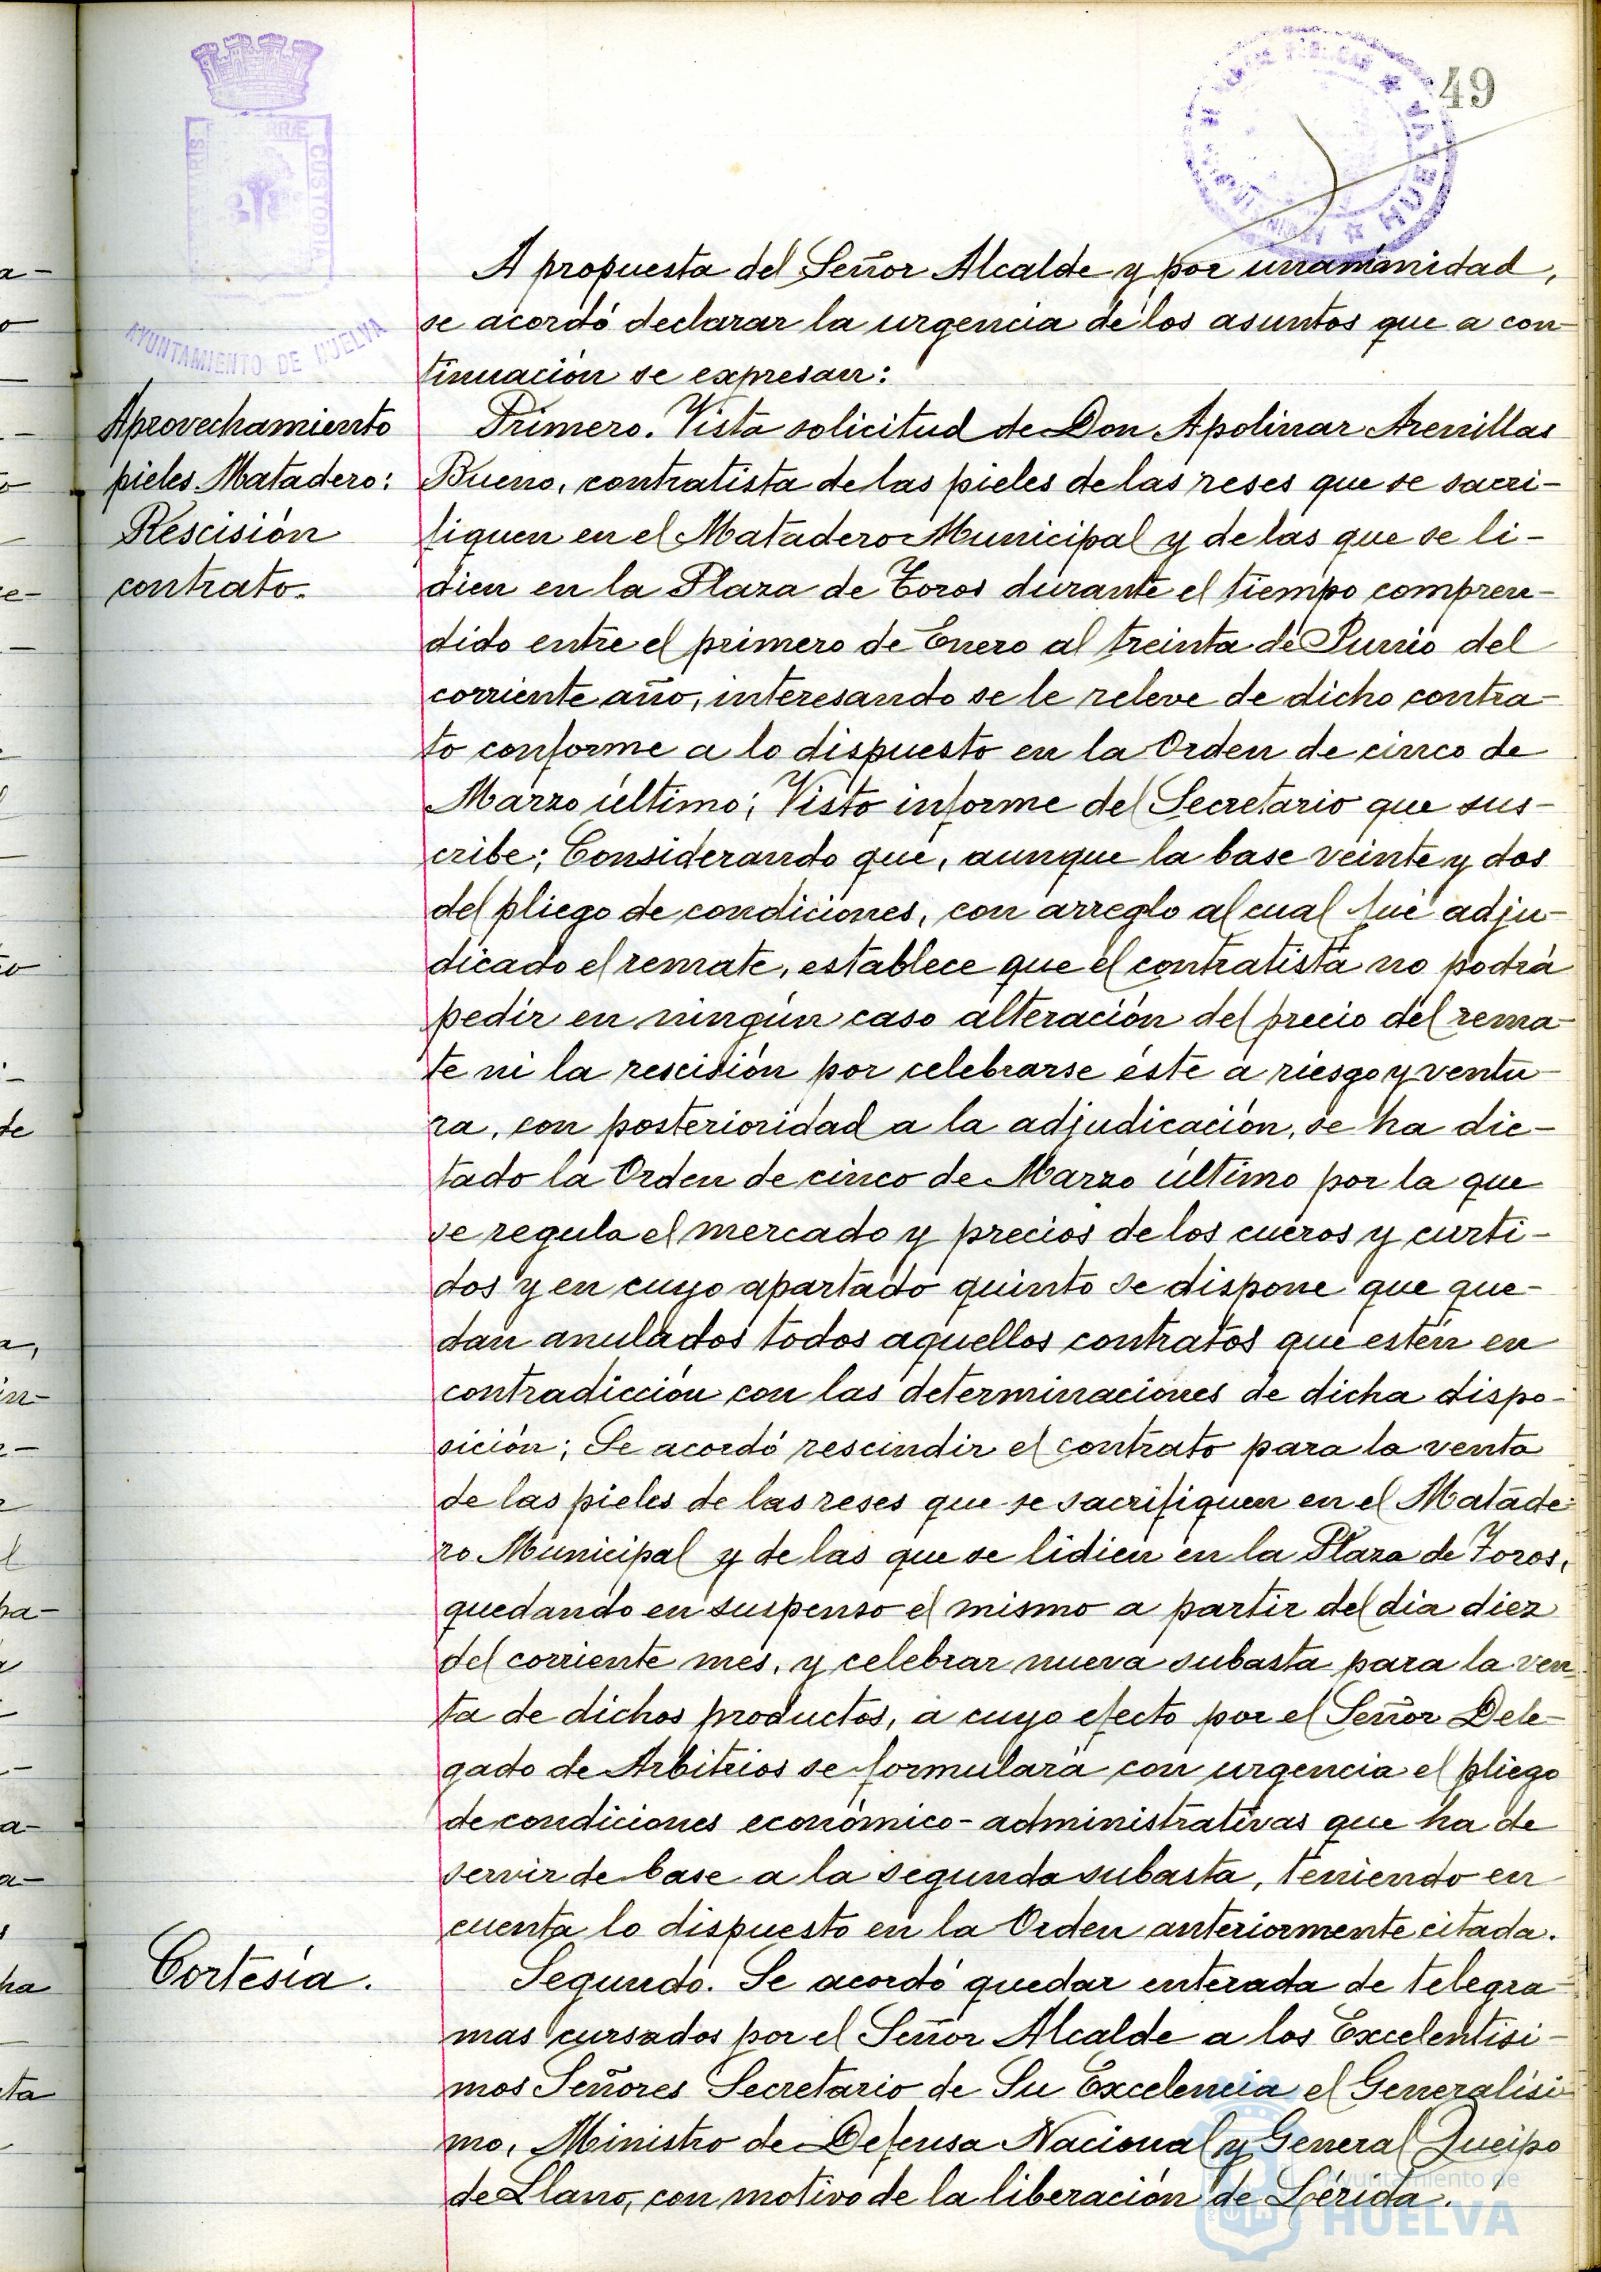 49
AYUNTAMIENTO DE HUELVA
A propuesta del Señor Alcalde y por unamanidad,
se acordó declarar la urgencia de los asuntos que a con-
tinuación se expresan:
Aprovechamiento
pieles Matadero:
Rescisión
contrato.
Primero. Vista solicitud de Don Apolinar Arenillas
Bueno, contratista de las pieles de las reses que se sacri-
fiquen en el Matadero Municipal y de las que se li-
dien en la Plaza de Toros durante el tiempo compren-
dido entre el primero de Enero al treinta de Junio del
corriente año, interesando se le releve de dicho contra-
to conforme a lo dispuesto en la Orden de cinco de
Marzo último; Visto informe del Secretario que sus-
cribe; Considerando que, aunque la base veinte y dos
del pliego de condiciones, con arreglo al cual fué adju-
dicado el remate, establece que el contratista no podrá
pedir en ningún caso alteración del precio del rema-
te ni la rescisión por celebrarse éste a riesgo y ventu-
ra, con posterioridad a la adjudicación, se ha dic-
tado la Orden de cinco de Marzo último por la que
se regula el mercado y precios de los cueros y curti-
dos y en cuyo apartado quinto se dispone que que-
dan anulados todos aquellos contratos que estén en
contradicción con las determinaciones de dicha dispo-
sición; Se acordó rescindir el contrato para la venta
de las pieles de las reses que se sacrifiquen en el Matade-
ro Municipal y de las que se lidien en la Plaza de Toros,
quedando en suspenso el mismo a partir del día diez
del corriente mes, y celebrar nueva subasta para la ven-
ta de dichos productos, a cuyo efecto por el Señor Dele-
gado de Arbitrios se formulará con urgencia el pliego
de condiciones económico-administrativas que ha de
servir de base a la segunda subasta, teniendo en
cuenta lo dispuesto en la Orden anteriormente citada.
Cortesía.
Segundo. Se acordó quedar enterada de telegra-
mas cursados por el Señor Alcalde a los Excelentísi-
mos Señores Secretario de Su Excelencia el Generalísi-
mo, Ministro de Defensa Nacional y General Queipo
de Llano, con motivo de la liberación de Lérida.
Ayuntamiento de
HUELVA